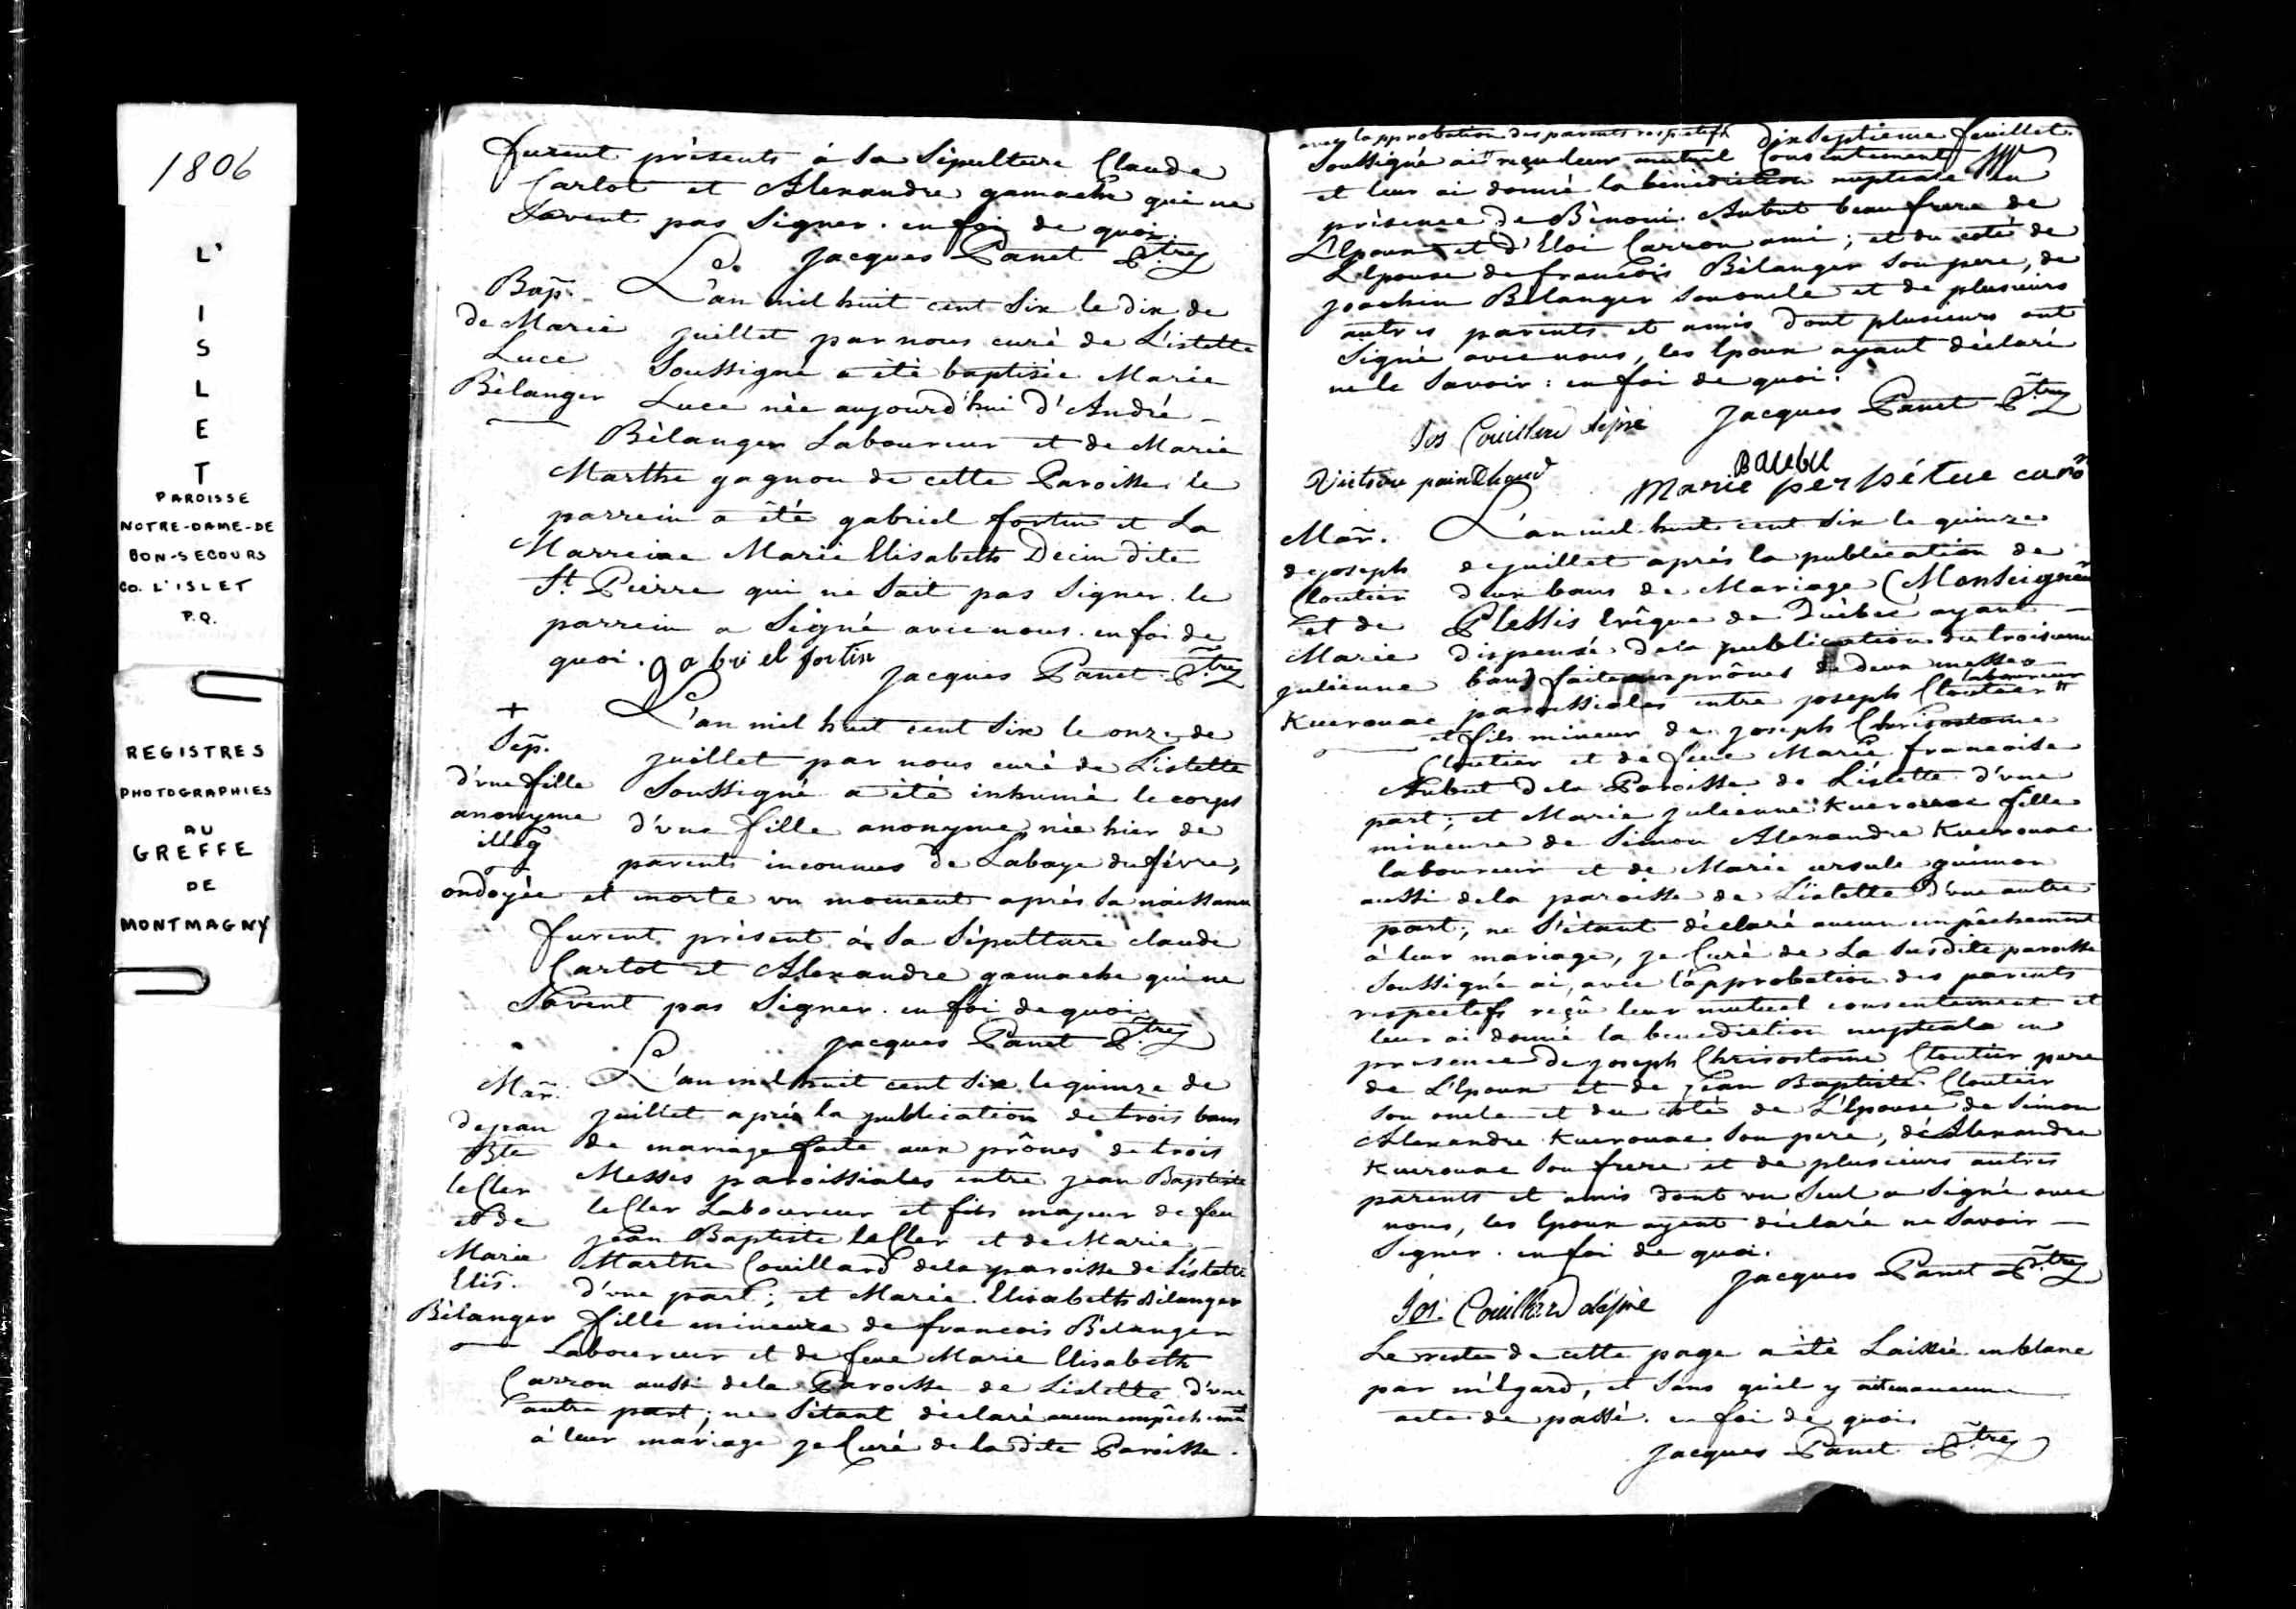 1806
L'
I
S
L
E
T
PAROISSE
NOTRE-DAME-DE
BON-SECOURS
CO. L'ISLET
P.Q.
REGISTRES
PHOTOGRAPHIES
AU
GREFFE
DE
MONTMAGNY
furent présents à sa Sépulture Claude
Carlot et Alexandre gamache qui ne
Savent pas Signer. en foi de quoi.
Jacques Panet Ptre
Bap.
de Marie
Luce
Bélanger
L'an mil huit cent Six le dix de
juillet par nous curé de L'islette
Soussigné a été baptisée Marie
Luce née aujourd'hui d'André
Bélanger Laboureur et de Marie
Marthe gagnon de cette Paroisse. le
parrein a été gabriel fortin et La
Marreine Marie Elisabeth Decin dite
St. Pierre qui ne Sait pas Signer. le
parrein a Signé avec nous. en foi de
quoi. gabriel fortin
Jacques Panet Ptre
+
Sep.
d'une fille
anonyme
illeg
L'an mil huit cent Six le onze de
juillet par nous curé de L'islette
Soussigné a été inhumé le corps
d'une fille anonyme, née hier de
parents inconnus de Labaye du febvre,
ondoyée et morte un moment après sa naissance
furent présent à Sa Sépulture claude
Carlot et Alexandre gamache qui ne
Savent pas Signer. en foi de quoi
Jacques Panet Ptre
Mar.
de jean
Bte
leCler
et de
Marie
Elis.
Bélanger
L'an mil huit cent Six le quinze de
juillet après la publication de trois bans
de mariage faite aux prônes de trois
Messes paroissiales entre jean Baptiste
leCler Laboureur et fils majeur de feu
jean Baptiste leCler et de Marie
Marthe Couillard de la paroisse de L'islette
d'une part; et Marie Elisabeth Bélanger
fille mineure de francois Bélanger
Laboureur et de feue Marie Elisabeth
Carron aussi de la Paroisse de Lislette d'une
autre part; ne S'étant déclaré aucun empêchement
à leur mariage je Curé de la dite Paroisse
avec l'approbation des parents respectifs Dixseptieme feuillet.
Soussigné ai reçu leur mutuel Consentement
et leur ai donné la bénédiction nuptiale en
présence de Bénoni Aubut beaufrere de
L'Epoux et d'Eloi Carron ami; et du coté de
L'Epouse de francois Bélanger son pere, de
joachin Bélanger son oncle et de plusieurs
autres parents et amis dont plusieurs ont
Signé avec nous, les Epoux ayant déclaré
ne le Savoir: en foi de quoi.
Jacques Panet Ptre
Jos Couillard dépré
Victoire painchaud
Marie perpétue caron
Mar.
de joseph
Cloutier
et de
Marie
julienne
Kuerouac
L'an mil huit cent Six le quinze
de juillet après la publication de
d'un bans de Mariage (Monseigneur
Plessis Evêque de Québec ayant
dispensé de la publication du troisieme
ban) faite aux prônes de deux messes
paroissiales entre joseph Cloutier laboureur
et fils mineur de joseph Chrisostome
Cloutier et de feue Marie francoise
Aubut de la Paroisse de L'islette d'une
part; et Marie julienne Kuerouac fille
mineure de Simon Alexandre Kuerouac
laboureur et de Marie ursule guimon
aussi de la paroisse de L'islette d'une autre
part; ne S'étant déclaré aucun empêchement
à leur mariage, je Curé de La Susdite paroisse
Soussigné ai, avec l'approbation des parents
respectifs reçu leur mutuel consentement et
leur ai donné la benediction nuptiale en
presence de joseph Chrisostome Cloutier pere
de L'Epoux et de jean Baptiste Cloutier
Son oncle et du côté de L'Epouse de Simon
Alexandre Kuerouac Son pere, de Alexandre
Kuerouac Son frere et de plusieurs autres
parents et amis dont un Seul a Signé avec
nous, les Epoux ayent déclaré ne Savoir
Signer. en foi de quoi.
Jacques Panet Ptre
Jos. Couillard dépré
Le reste de cette page a été Laissé en blanc
par mégard, et Sans qu'il y ait aucune
acte de passé. en foi de quoi
Jacques Panet Ptre